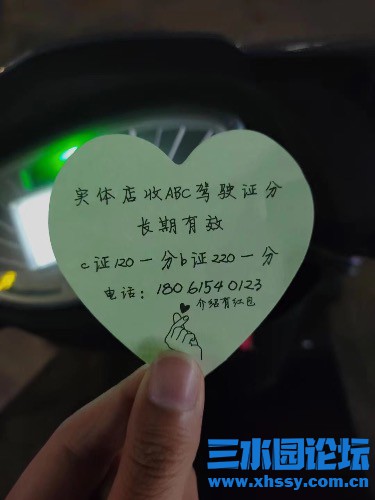 实体店收ABC驾驶证分
长期有效
c证120一分b证220一分
电话：180 6154 0123
介绍有红包
三水园论坛
www.xhssy.com.cn